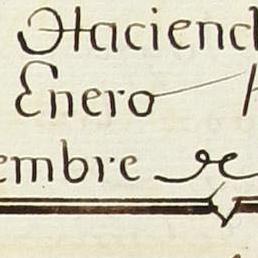 Haciend
Enero
embre de